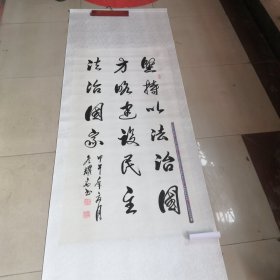 坚持以法治国
方略建设民主
法治国家
甲午年